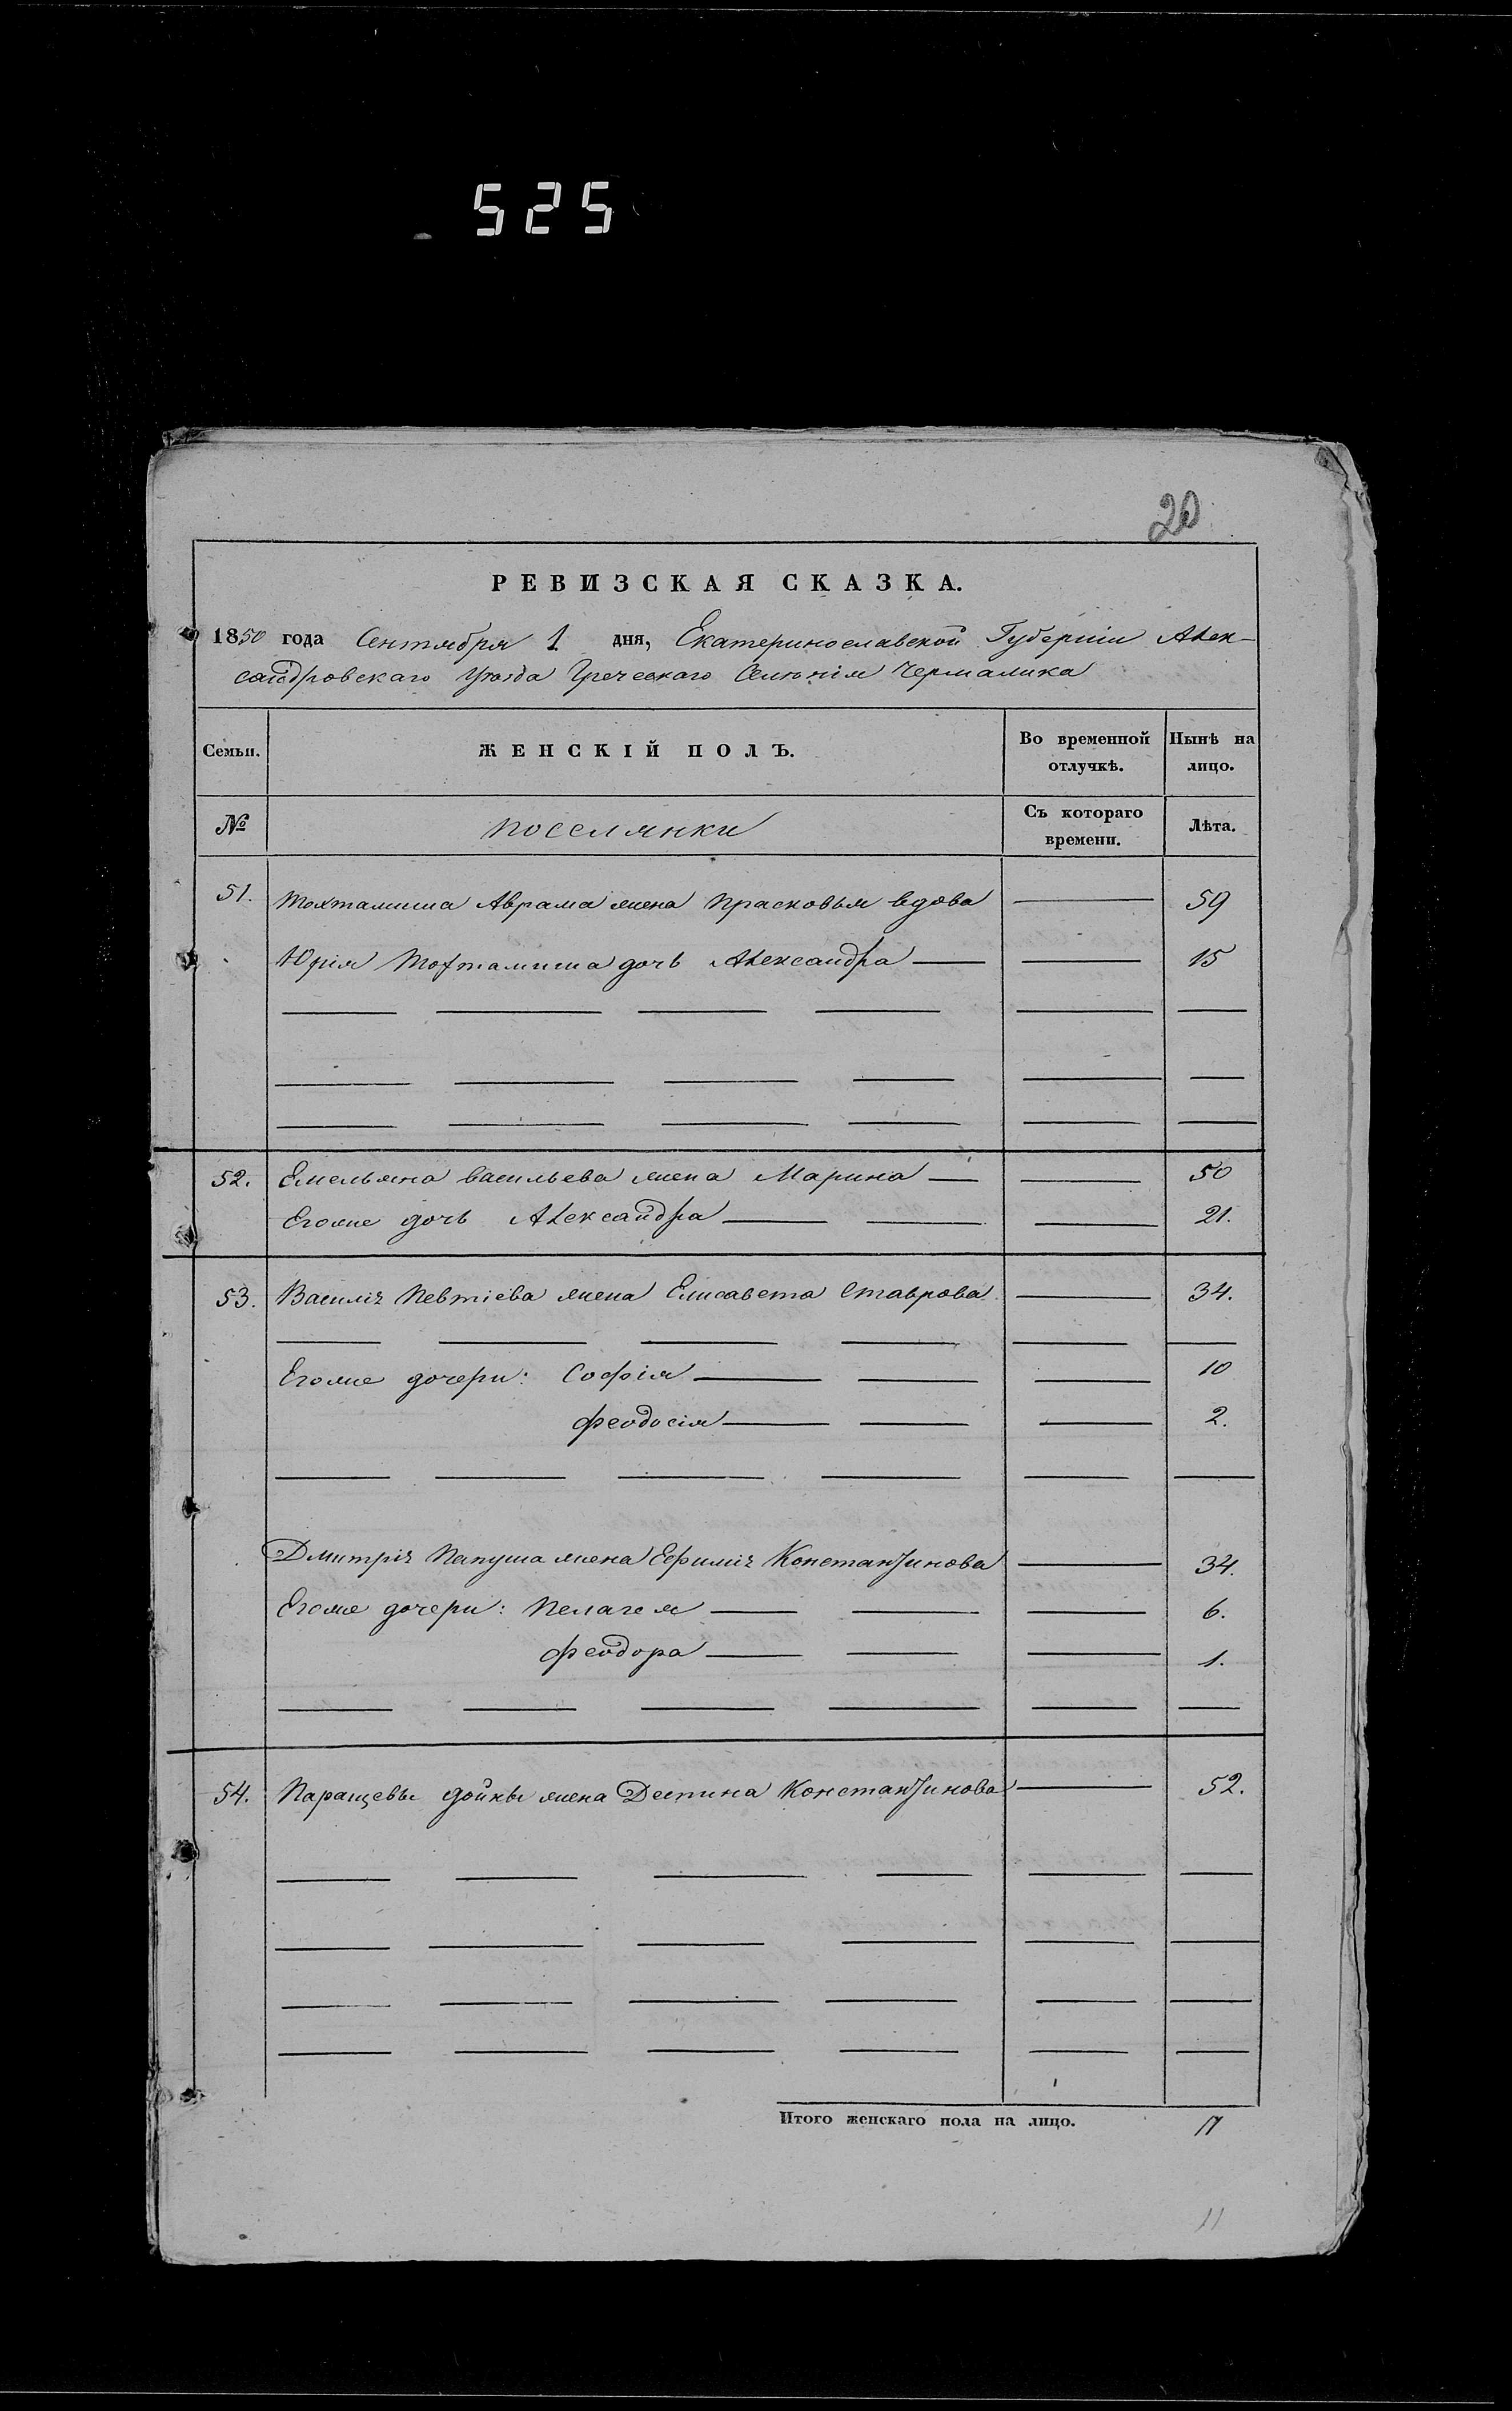 525
20
РЕВИЗСКАЯ СКАЗКА.
1850 года Сентября 1 дня, Екатеринославской Губерніи Алек-
сандровскаго Уѣзда Греческаго Селенія Чермалика
Семьи. ЖЕНСКІЙ ПОЛЪ. Во временной отлучкѣ. Нынѣ на лицо.
№ поселянки Съ котораго времени. Лѣта.
51. Тохтамыша Аврама жена Прасковья вдова — 59
Юрія Тохтамыша дочь Александра — — 15
52. Емельяна Васильева жена Марина — — 50
Егоже дочь Александра — — — 21.
53. Василія Певтіева жена Елисавета Ставрова — 34.
Егоже дочери: Софія — — — 10
Феодосія — — — 2.
Дмитрія Папуша жена Ефимія Константинова — 34.
Егоже дочери: Пелагея — — — 6.
Феодора — — — 1.
54. Паращевы Дойкы жена Деспина Константинова — 52.
Итого женскаго пола на лицо. 11
11